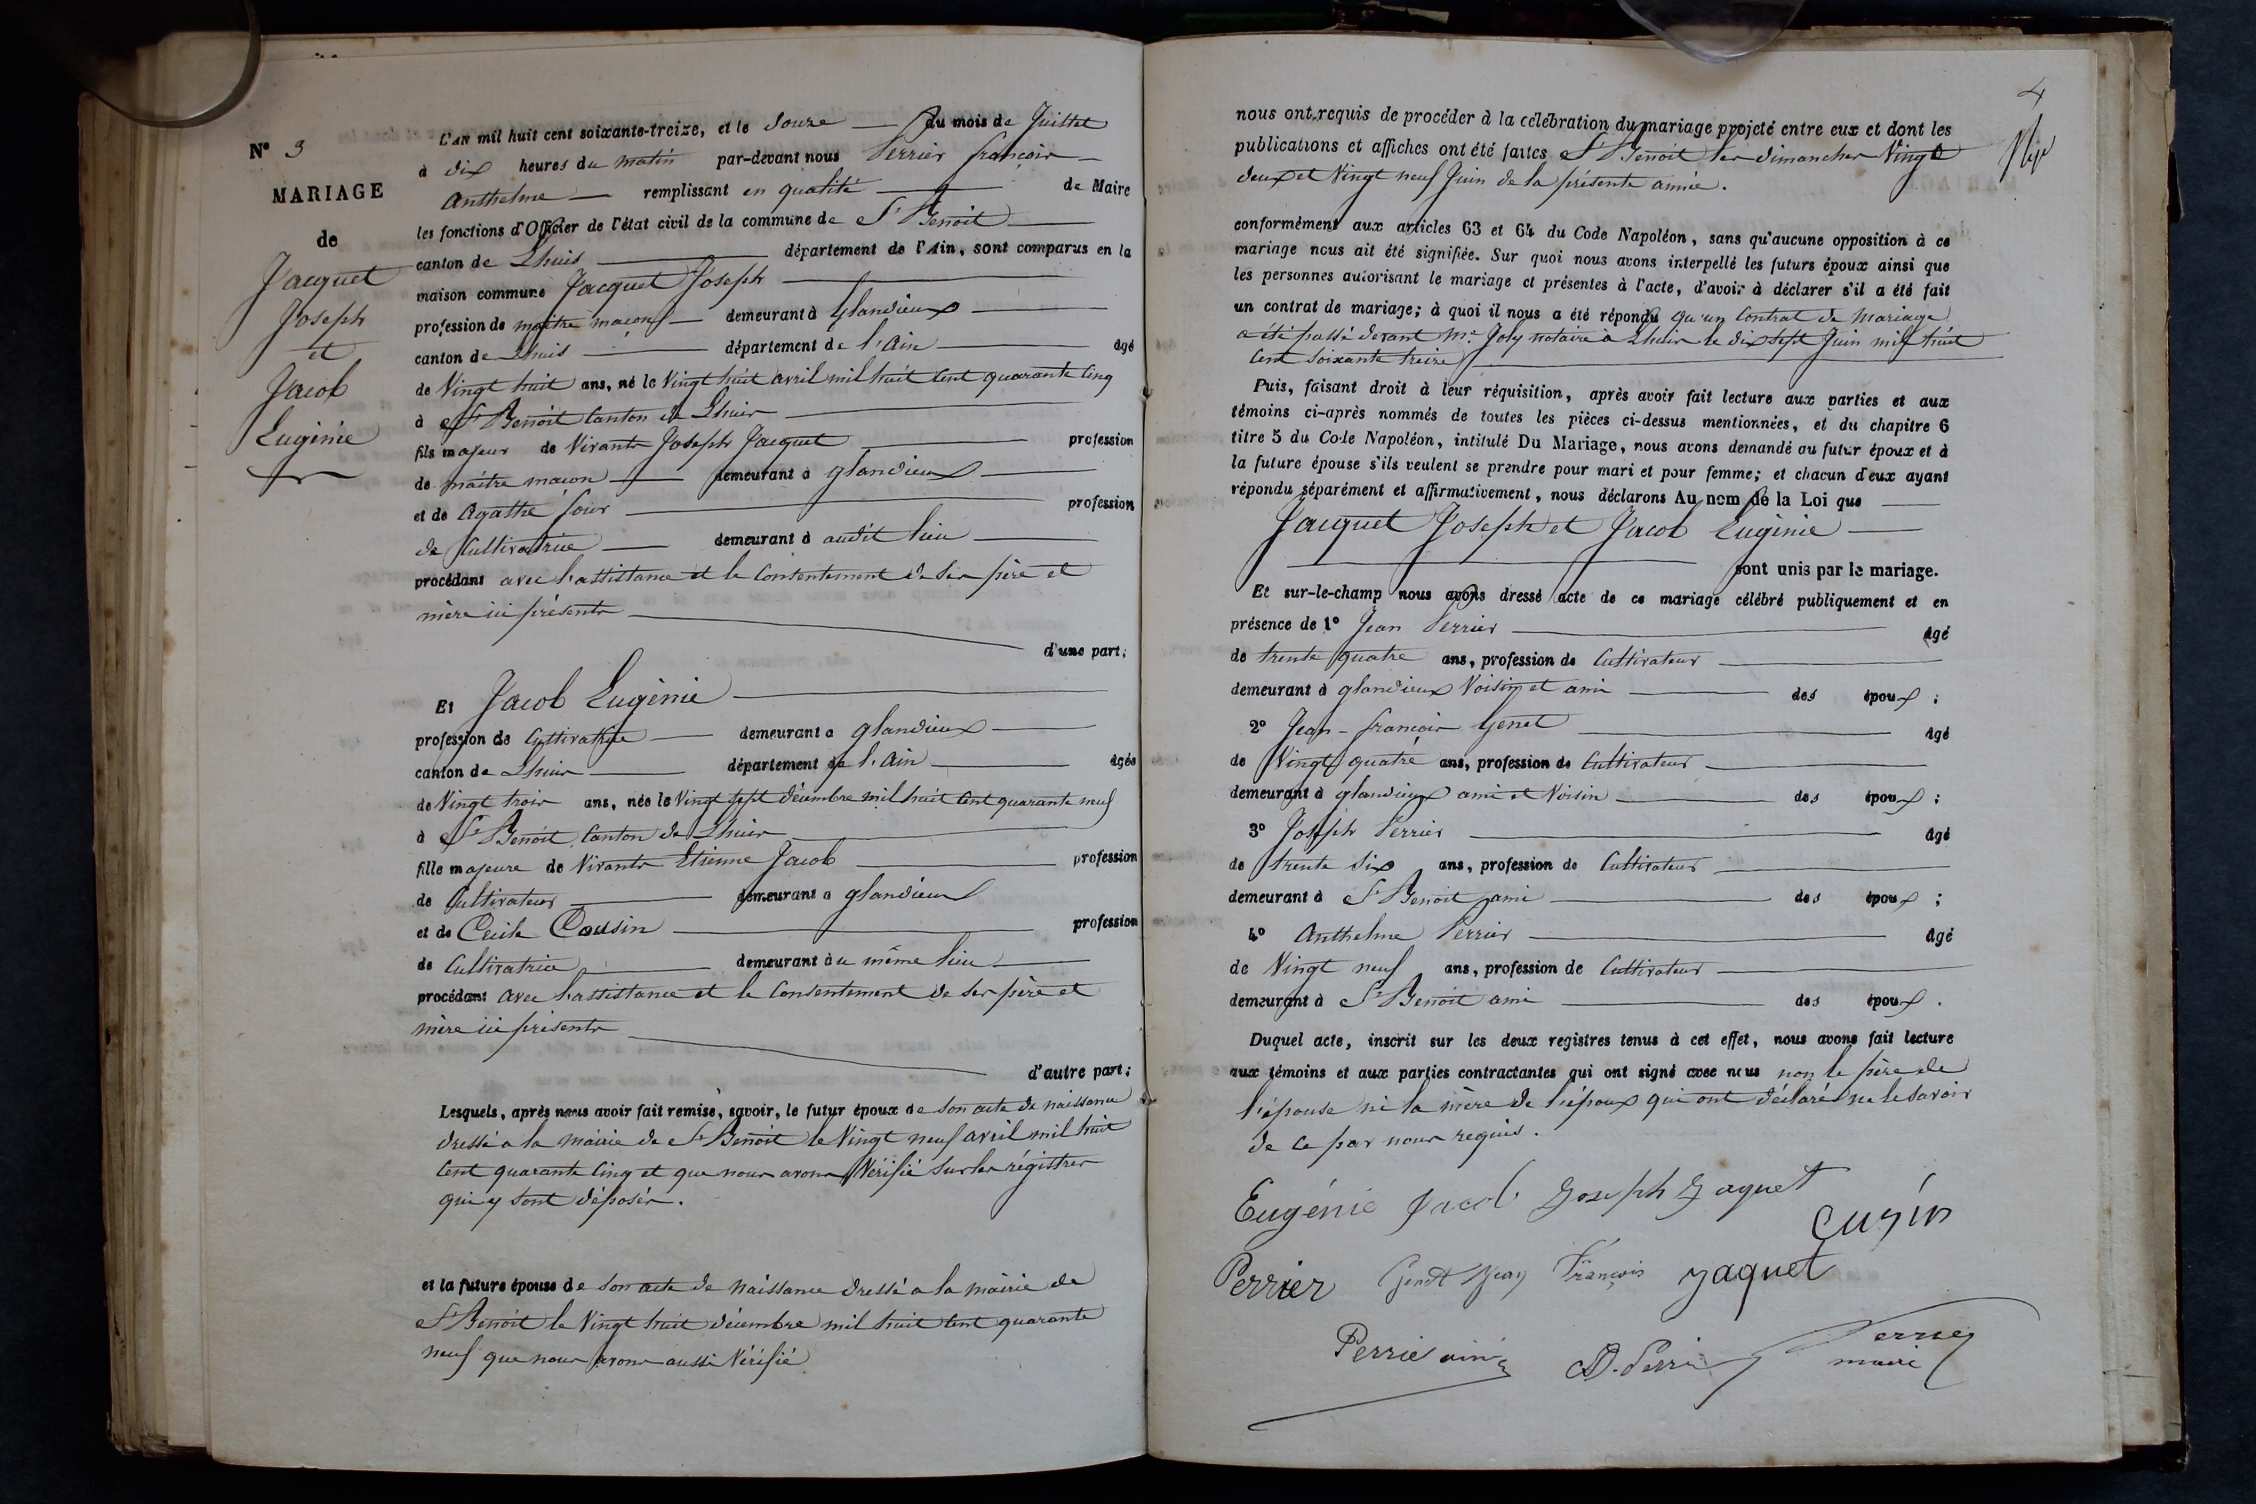 N° 3
MARIAGE
de
Jacquet
Joseph
et
Jacob
Eugénie
L'AN mil huit cent soixante-treize, et le douze du mois de Juillet
à dix heures du matin par-devant nous Perrier françois
Anthelme remplissant en qualité de Maire
les fonctions d'Officier de l'état civil de la commune de St Benoit
canton de Lhuis département de l'Ain, sont comparus en la
maison commune Jacquet Joseph
profession de maître maçon demeurant à Glandieux
canton de Lhuis département de l'Ain âgé
de Vingt huit ans, né le Vingt huit avril mil huit cent quarante cinq
à St Benoit Canton de Lhuis
fils majeur de Vivants Joseph Jacquet profession
de maître maçon demeurant à glandieux
et de Agathe four profession
de Cultivatrice demeurant à audit lieu
procédant avec l'assistance et le Consentement de ses père et
mère ici présents
d'une part;
Et Jacob Eugénie
profession de Cultivatrice demeurant à glandieux
canton de Lhuis département de l'Ain âgée
de Vingt trois ans, née le Vingt sept décembre mil huit cent quarante neuf
à St Benoit Canton de Lhuis
fille majeure de Vivants Etienne Jacob profession
de Cultivateur demeurant à glandieux
et de Cécile Cousin profession
de Cultivatrice demeurant àu même lieu
procédant avec l'assistance et le Consentement de ses père et
mère ici présents
d'autre part;
Lesquels, après nous avoir fait remise, savoir, le futur époux de son acte de naissance
dressé a la mairie de St Benoit le Vingt neuf avril mil huit
cent quarante cinq et que nous avons Vérifié sur les régistres
qui y sont déposés.
et la future épouse de son acte de naissance dressé a la mairie de
St Benoit le Vingt huit décembre mil huit cent quarante
neuf que nous avons aussi Vérifié
4
nous ont requis de procéder à la célébration du mariage projeté entre eux et dont les
publications et affiches ont été faites St Benoit les dimanches Vingt
deux et Vingt neuf Juin de la présente année.
conformément aux articles 63 et 64 du Code Napoléon, sans qu'aucune opposition à ce
mariage nous ait été signifiée. Sur quoi nous avons interpellé les futurs époux ainsi que
les personnes autorisant le mariage et présentes à l'acte, d'avoir à déclarer s'il a été fait
un contrat de mariage; à quoi il nous a été répondu qu'un Contrat de Mariage
a été passé devant Me Joly notaire à Lhuis le dix sept Juin mil huit
cent soixante treize
Puis, faisant droit à leur réquisition, après avoir fait lecture aux parties et aux
témoins ci-après nommés de toutes les pièces ci-dessus mentionnées, et du chapitre 6
titre 5 du Code Napoléon, intitulé Du Mariage, nous avons demandé au futur époux et à
la future épouse s'ils veulent se prendre pour mari et pour femme; et chacun d'eux ayant
répondu séparément et affirmativement, nous déclarons Au nom de la Loi que
Jacquet Joseph et Jacob Eugénie
sont unis par le mariage.
Et sur-le-champ nous avons dressé acte de ce mariage célébré publiquement et en
présence de 1° Jean Perrier âgé
de trente quatre ans, profession de Cultivateur
demeurant à glandieux Voisin et ami des époux;
2° Jean-françois Genet âgé
de Vingt quatre ans, profession de Cultivateur
demeurant à glandieux ami et Voisin des époux;
3° Joseph Perrier âgé
de trente six ans, profession de Cultivateur
demeurant à St Benoit ami des époux;
4° Anthelme Perrier âgé
de Vingt neuf ans, profession de Cultivateur
demeurant à St Benoit ami des époux.
Duquel acte, inscrit sur les deux registres tenus à cet effet, nous avons fait lecture
aux témoins et aux parties contractantes qui ont signé avec nous non le père de
l'épouse ni la mère de l'époux qui ont déclaré ne le savoir
de ce par nous requis.
Eugénie Jacob Joseph Jaquet
Cuzin
Perrier Genet Jean François Jaquet
Perrier ainé Perrier
maire